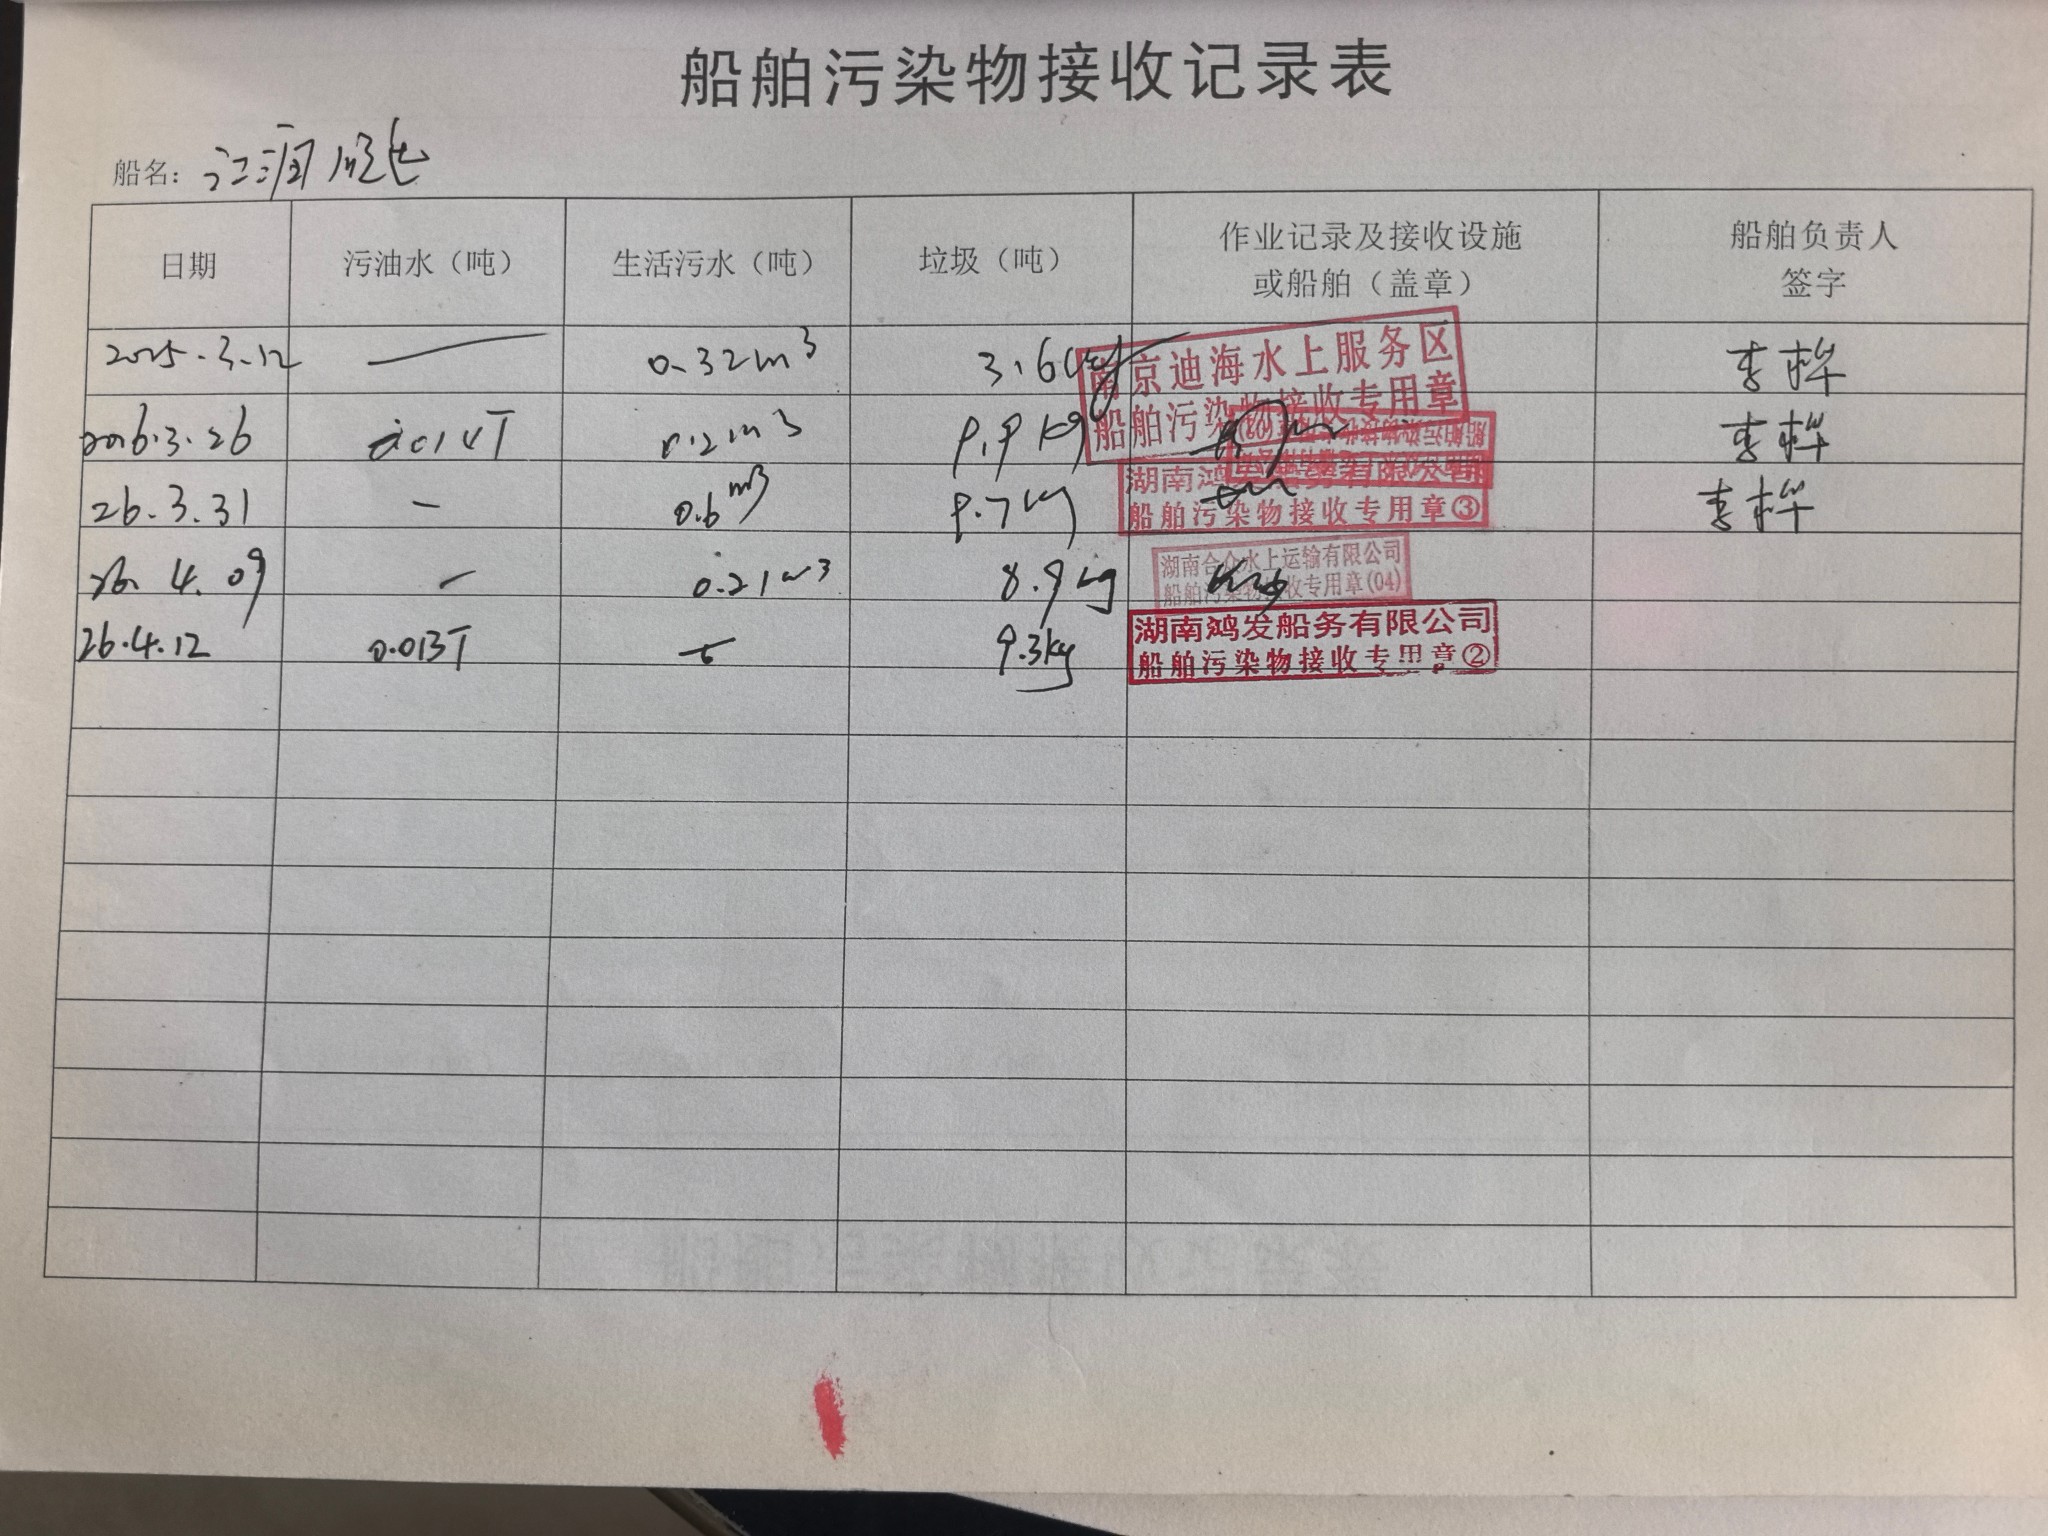 船舶污染物接收记录表
船名：江润
日期 污油水（吨） 生活污水（吨） 垃圾（吨） 作业记录及接收设施或船舶（盖章） 船舶负责人签字
2025.3.12 — 0.32m³ 3.6 南京迪海水上服务区 船舶污染物接收专用章 李桦
2026.3.26 0.2m³ 9.9kg 李桦
26.3.31 — 0.6m³ 9.7kg 湖南鸿 船舶污染物接收专用章③ 李桦
26.4.09 — 0.21m³ 8.9kg 湖南合众水上运输有限公司 船舶污染物接收专用章(04)
26.4.12 0.013T — 9.3kg 湖南鸿发船务有限公司 船舶污染物接收专用章②